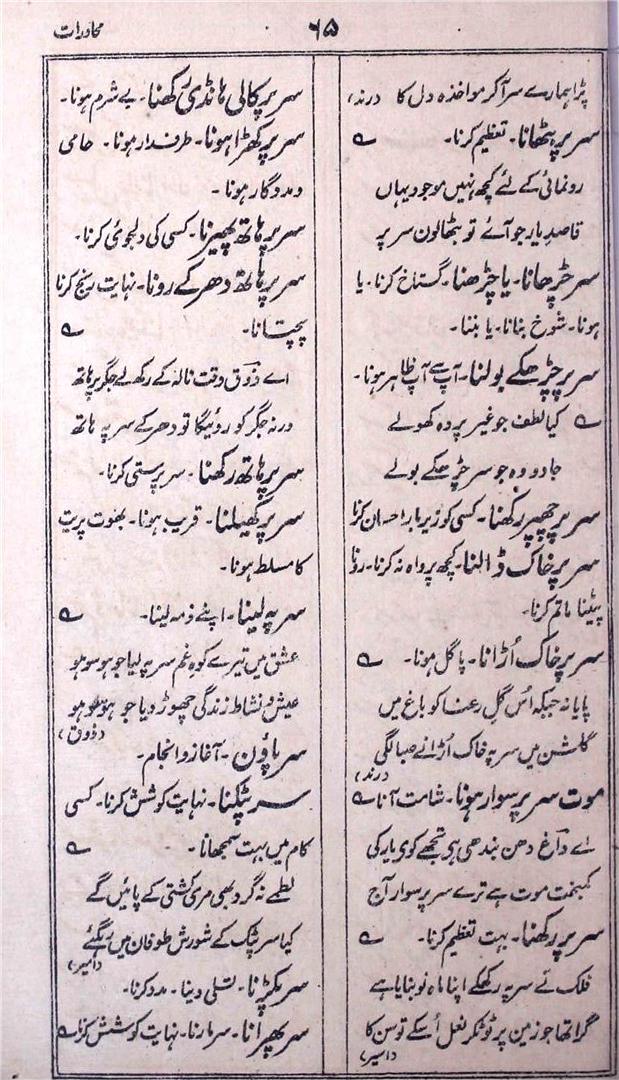 محاورات
۶۵
پڑا ہمارے سر آکر مواخذہ دل کا (رند)
سر پر بٹھانا۔ تعظیم کرنا۔ ے
رونمائی کے لئے کچھ نہیں موجود یہاں
قاصدِ یار جو آئے تو بٹھالوں سر پر
سر چڑھانا۔ یا چڑھنا۔ گستاخ کرنا۔ یا
ہونا۔ شوخ بنانا۔ یا بننا۔
سر پر چڑھکے بولنا۔ آپ سے آپ ظاہر ہونا۔
ے کیا لطف جو غیر پردہ کھولے
جادو وہ جو سر چڑھکے بولے
سر پر چھپر رکھنا۔ کسی کو زیر بار احسان کرنا
سر پر خاک ڈالنا۔ کچھ پرواہ نہ کرنا۔ رونا
پیٹنا ماتم کرنا۔
سر پر خاک اُڑانا۔ پاگل ہونا۔ ے
پایا نہ جبکہ اُس گلِ رعنا کو باغ میں
گلشن میں سر پہ خاک اُڑانے صبا لگی
(رند)
موت سر پر سوار ہونا۔ شامت آنا ے
اے داغ دھن بندھی ہی تجھے کوی یار کی
کمبخت موت ہے ترے سر پر سوار آج
سر پر رکھنا۔ بہت تعظیم کرنا۔ ے
فلک نے سر پہ رکھکے اپنا ماہ نو بنایا ہے
گرا تھا جو زمین پر ٹوٹکر نعل اُسکے توسن کا
(اسیر)
سر پر کالی ہانڈی رکھنا۔ بے شرم ہونا۔
سر پر کھڑا ہونا۔ طرفدار ہونا۔ حامی
و مددگار ہونا۔
سر پر ہاتھ پھیرنا۔ کسی کی دلجوئی کرنا۔
سر پر ہاتھ دھر کے رونا۔ نہایت رنج کرنا
پچتانا۔ ے
اے ذوق وقت نالہ کے رکھ لے جگر پر ہاتھ
ورنہ جگر کو روئیگا تو دھر کے سر پہ ہاتھ
سر پر ہاتھ رکھنا۔ سرپرستی کرنا۔
سر پر کھیلنا۔ قریب ہونا۔ بھوت پریت
کا مسلط ہونا۔
سر پہ لینا۔ اپنے ذمہ لینا۔ ے
عشق میں تیرے کوہ غم سر پہ لیا جو ہو سو ہو
عیش و نشاط زندگی چھوڑ دیا جو ہو سو ہو
(ذوق)
سر پاؤن۔ آغاز و انجام۔
سر پٹکنا۔ نہایت کوشش کرنا۔ کسی
کام میں بہت سمجھانا۔ ے
لطمے نہ گرد بھی مری کشتی کے پائیں گے
کیا سر پٹک کے شورش طوفان میں رہگئے
(اسیر)
سر پکڑنا۔ تسلی دینا۔ مدد کرنا۔
سر پھرانا۔ سر مارنا۔ نہایت کوشش کرنا ے